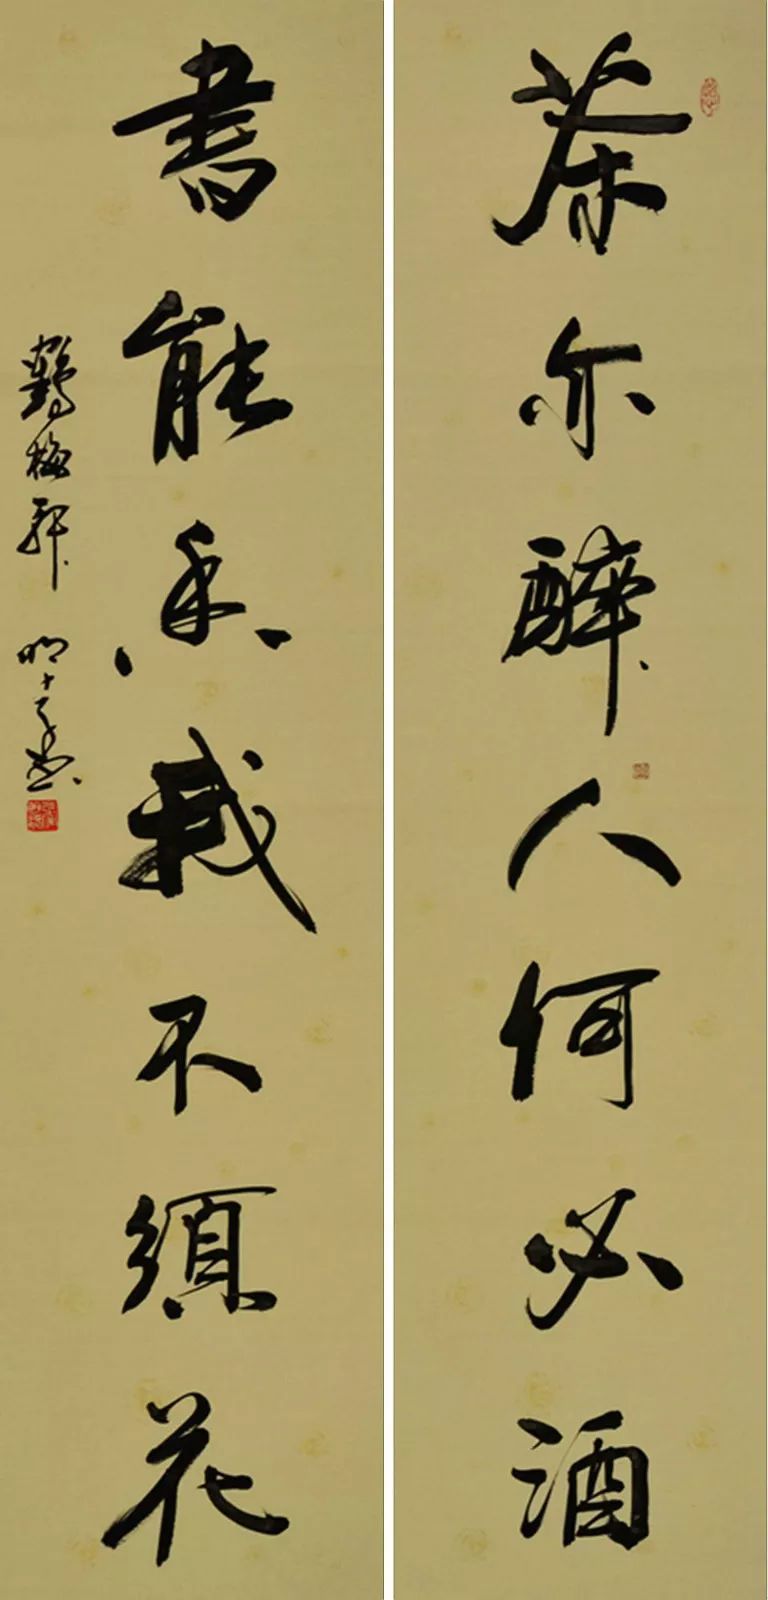 茶亦醉人何必酒
書能香我不須花
鶴梅軒